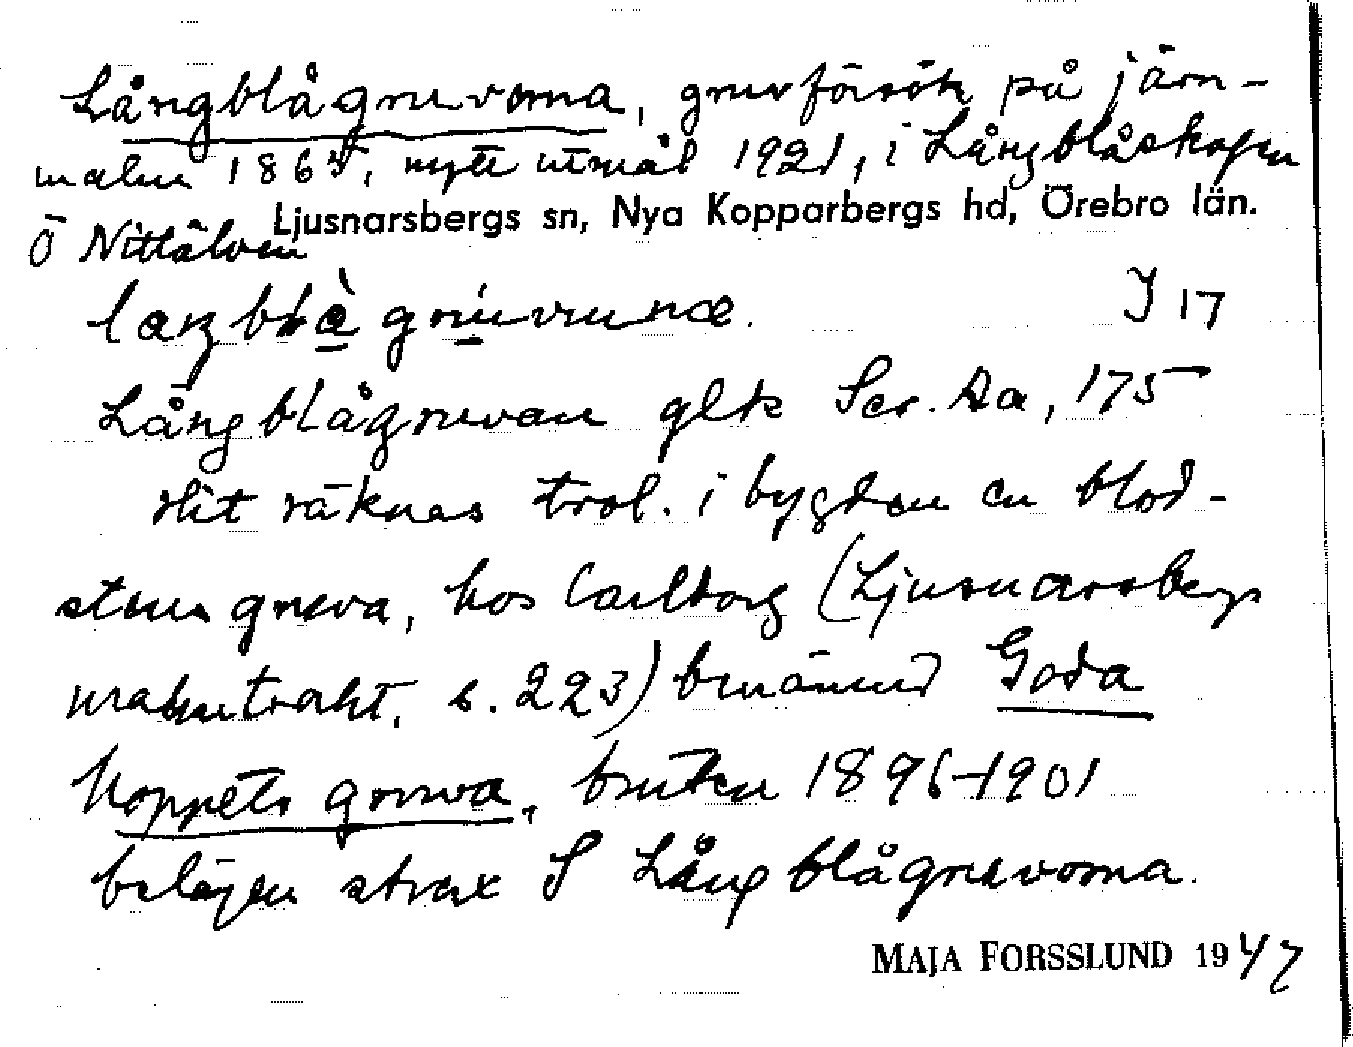 Långblågruvorna, gruvförsök på järn-
malm 1865, nytt utmål 1921, i Långblåskogen
Ö Nittälven
Ljusnarsbergs sn, Nya Kopparbergs hd, Örebro län.
J 17
Långblågruvan glk Ser. Aa, 175
Hit räknas trol. i bygden en blod-
stensgruva, hos Carlborg (Ljusnarsbergs
malmtrakt, s. 223) benämnd Goda
Hoppets gruva, bruten 1896-1901
belägen strax S Långblågruvorna.
MAJA FORSSLUND 1947